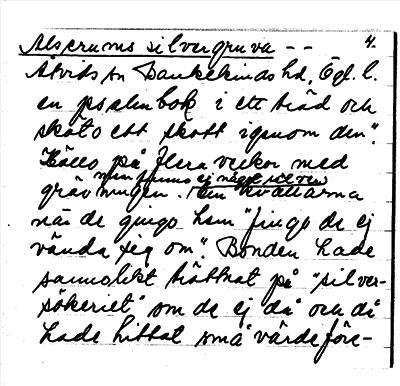 Alserums silvergruva -- 4.
Åtvids sn Bankekinds hd, Ögl. l.
en psalmbok i ett träd och
sköto ett skott igenom den".
Hölls på flera veckor med
men fanns ej något silver
grävningen. Om kvällarna
när de gingo hem "fingo de ej
vända sig om". Bonden hade
sannolikt tröttnat på "silver-
sökeriet" om de ej då och då
hade hittat små värdeföre-